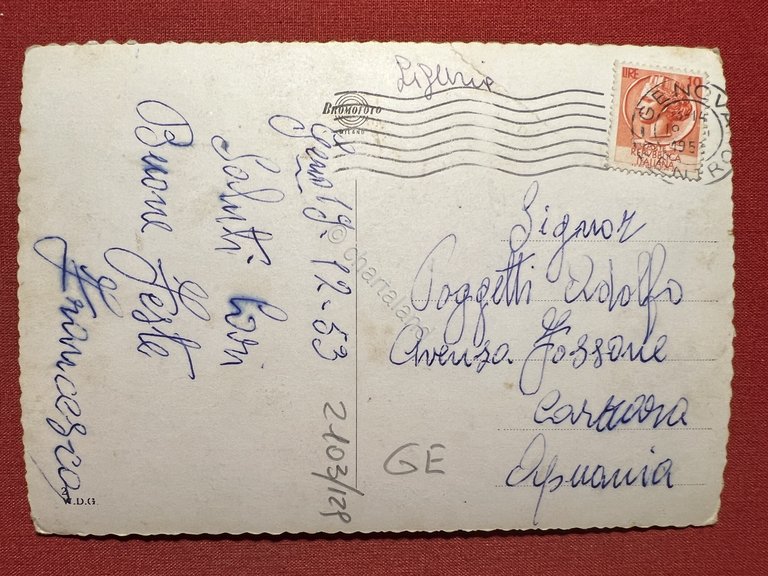 Liguria
BROMOFOTO
MILANO
LIRE 10
REPUBBLICA
ITALIANA
GENOVA
CENTRO
19-12-53
Saluti Cari
Buone Feste
Francesco
Signor
Poggetti Adolfo
Avenza Fossone
Carrara
Apuania
© chartaland
2103/128
GE
W.D.G.